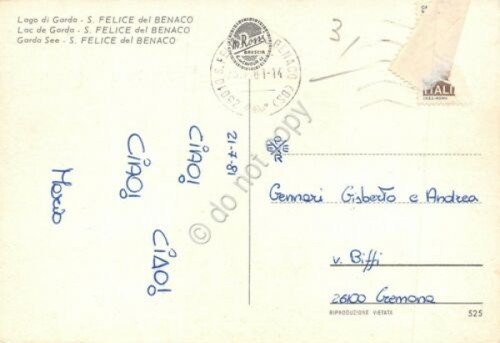 Lago di Garda - S. FELICE del BENACO
Lac de Garda - S. FELICE del BENACO
Garda See - S. FELICE del BENACO
BRESCIA
3/
ITALI
21-7-81
CIAO!
CIAO!
CIAO!
Mario
Gennari Gisberto e Andrea
v. Biffi
26100 Cremona
RIPRODUZIONE VIETATA
525
© do not copy